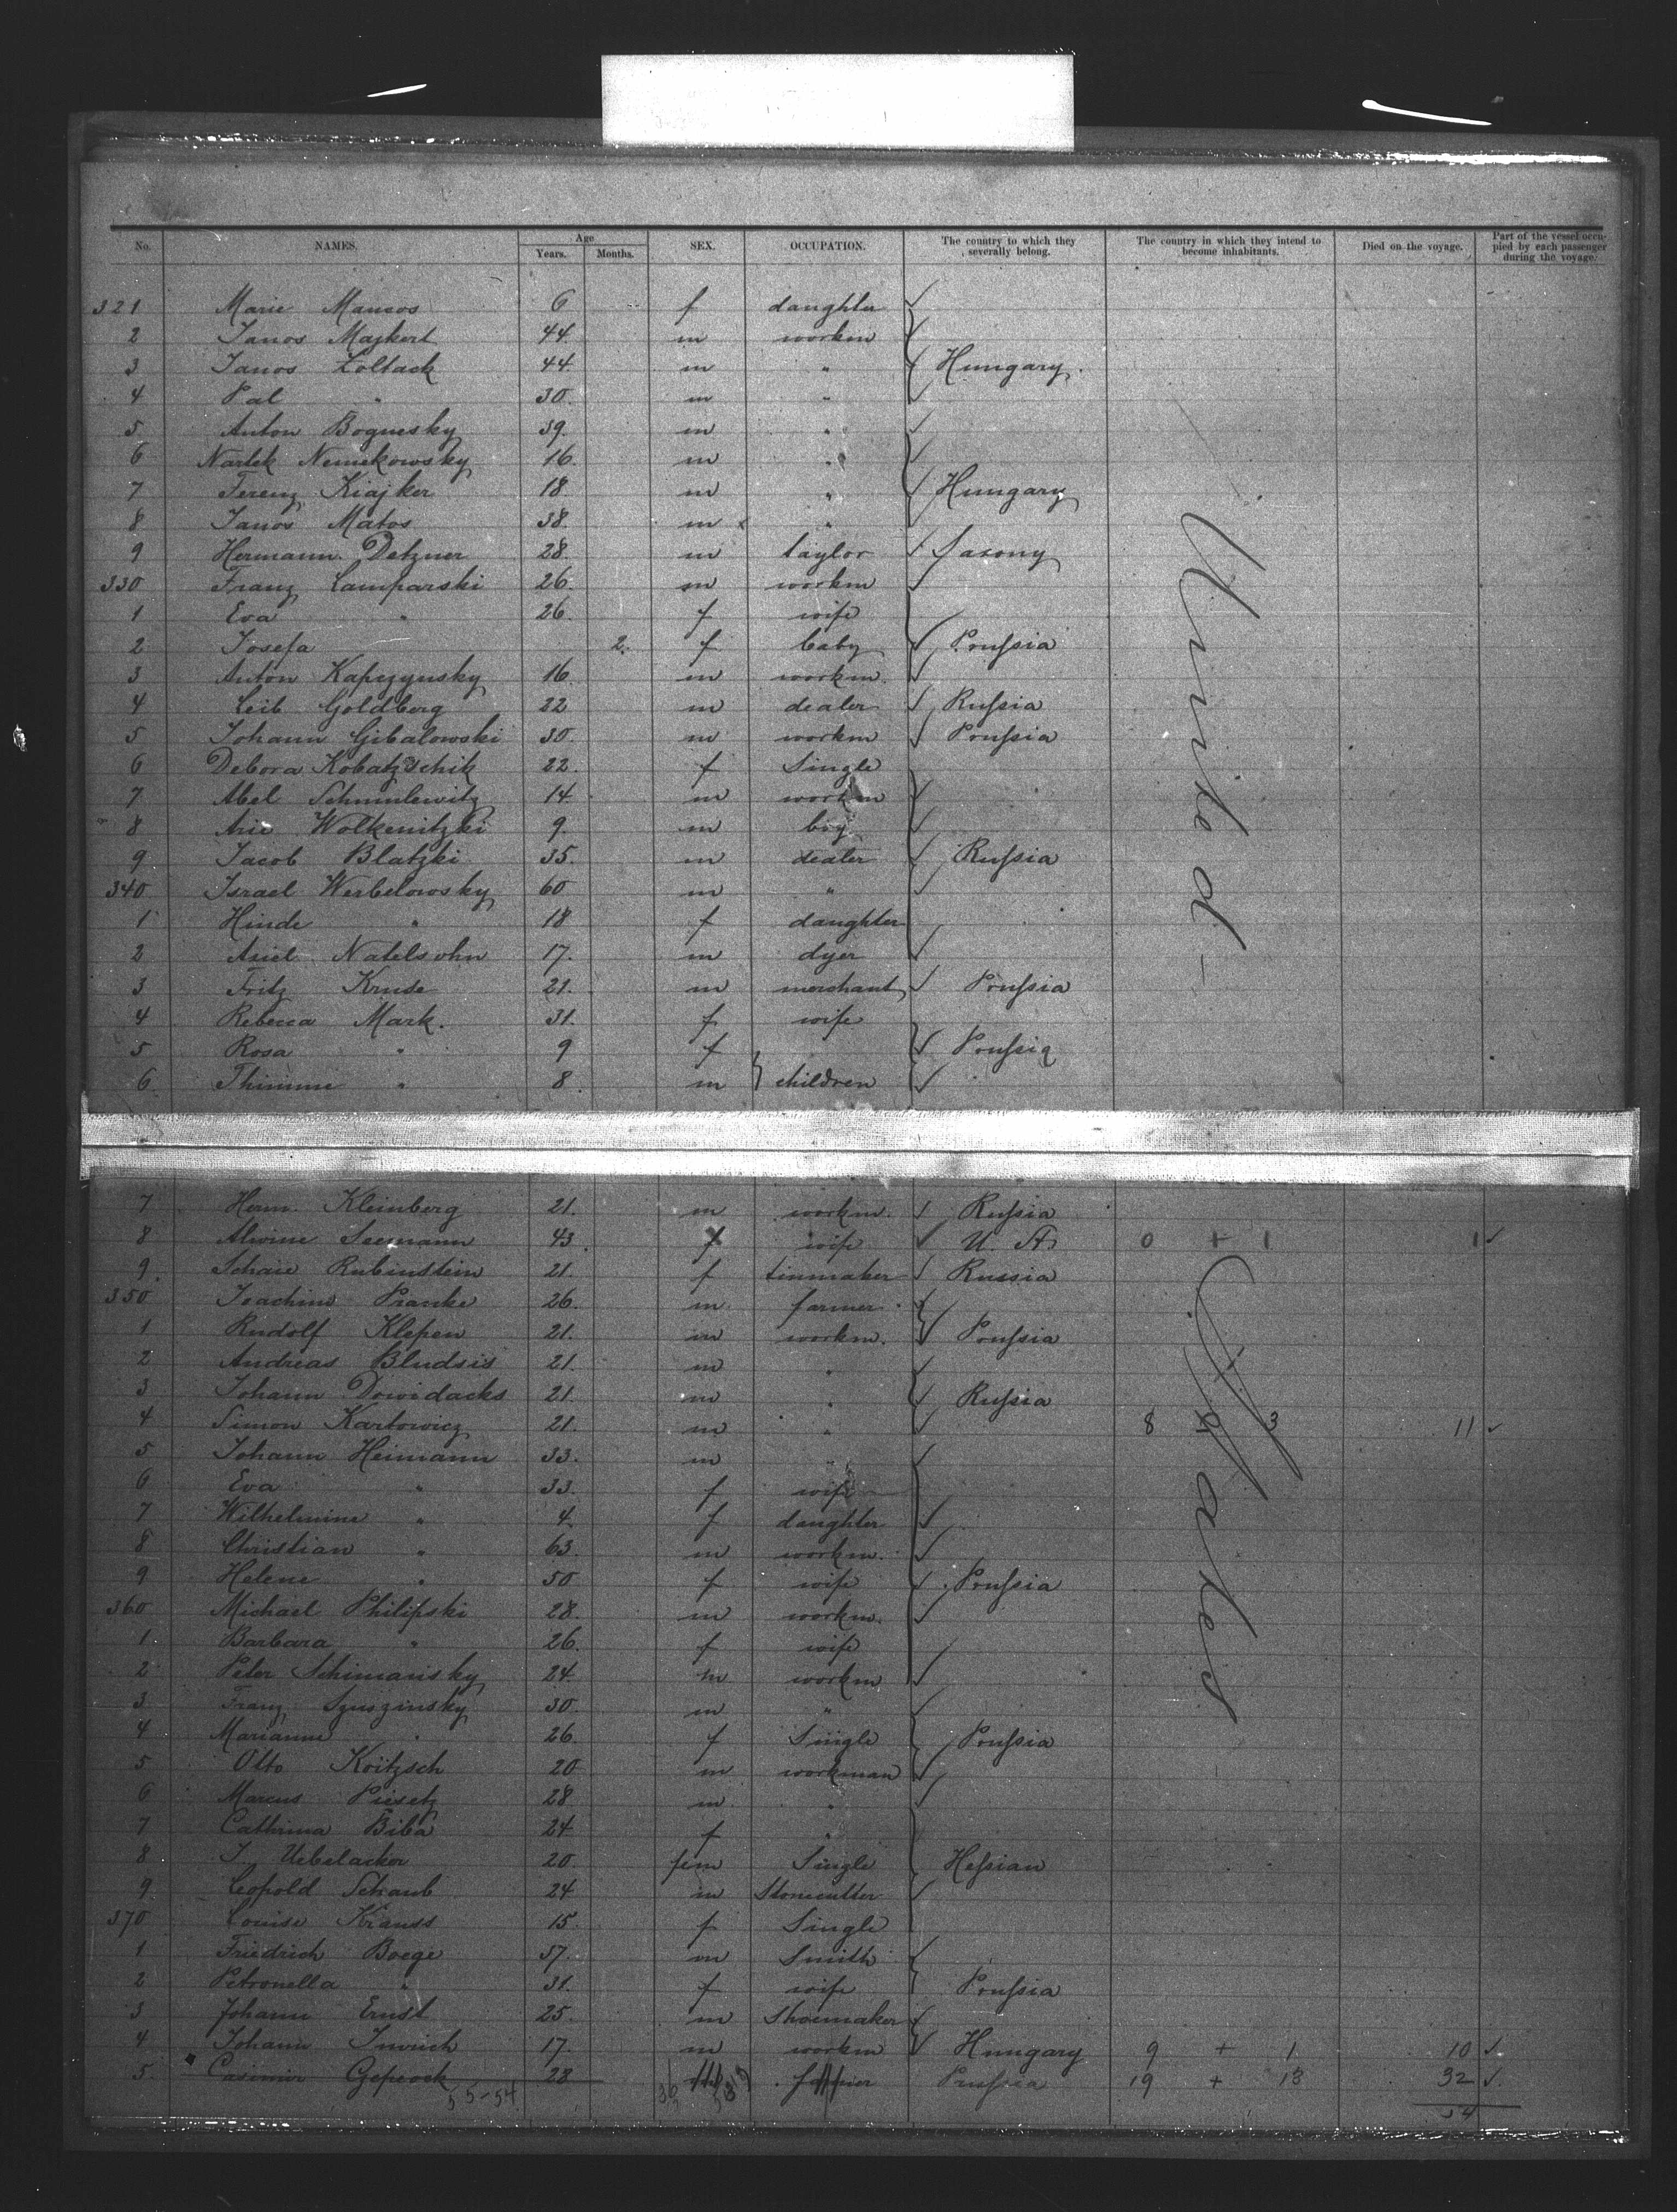 No. NAMES. Age Years. Months. SEX. OCCUPATION. The country to which they severally belong. The country in which they intend to become inhabitants. Died on the voyage. Part of the vessel occupied by each passenger during the voyage.
321 Marie Mancos 6 f daughter
2 Janos Majkert 44 m workm
3 Janos Zoltack 44 m " Hungary.
4 Pal " 30. m "
5 Anton Bognesky 39. m "
6 Nartek Nemekowsky 16. m "
7 Ferenz Kiajker 18 m " Hungary
8 Janos Matos 38. m "
9 Hermann Detzner 28. m taylor Saxony
330 Franz Lamparski 26. m workm
1 Eva " 26. f wife
2 Josefa 2. f baby Prussia
3 Anton Kapczynsky 16. m workm.
4 Leib Goldberg 22 m dealer Russia
5 Johann Gibalowski 30. m workm Prussia
6 Debora Kobatzschik 22. f Single
7 Abel Schmulewitz 14 m workm
8 Arie Wolkewitzki 9. m boy
9 Jacob Blatzki 35. m dealer Russia
340 Israel Werbelowsky 60 m "
1 Hinde " 18 f daughter
2 Asiel Natelsohn 17. m dyer
3 Fritz Kruse 21. m merchant Prussia
4 Rebecca Mark. 31. f wife
5 Rosa " 9 f Prussia
6 Thimme " 8. m children
United
7 Herm. Kleinberg 21. m workm. Russia
8 Alwine Seemann 43. f wife U. St. 0 + 1 1
9. Schaie Rubinstein 21. f tinmaker Russia
350 Joachim Pranke 26. m. farmer
1 Rudolf Klepen 21. m workm. Prussia
2 Andreas Bludsis 21. m "
3 Johann Dowidacks 21. m " Russia
4 Simon Kartowicz 21. m " 8 3 11
5 Johann Heimann 33. m "
6 Eva " 33. f wife
7 Wilhelmine " 4 f daughter
8 Christian " 63. m workm.
9 Helene " 50 f wife Prussia
360 Michael Philipski 28. m workm.
1 Barbara " 26. f wife
2 Peter Schimansky 24 m workm
3 Franz Szuszinsky 30. m "
4 Marianne " 26. f Single Prussia
5 Otto Koitzsch 20 m workman
6 Marcus Piesetz 28 m "
7 Cathrina Biba 24 f "
8 J. Uebelacker 20. fem Single Hessian
9 Leopold Schaub 24 m Stonecutter
370 Louise Krauss 15. f Single
1 Friedrich Boege 57. m Smith
2 Petronella " 31. f wife Prussia
3 Johann Ernst 25. m Shoemaker
4 Johann Imrich 17. m workm Hungary 9 + 1 10
5. Casimir Gepcock 28 Prussia 19 + 13 32
States
55-54 54